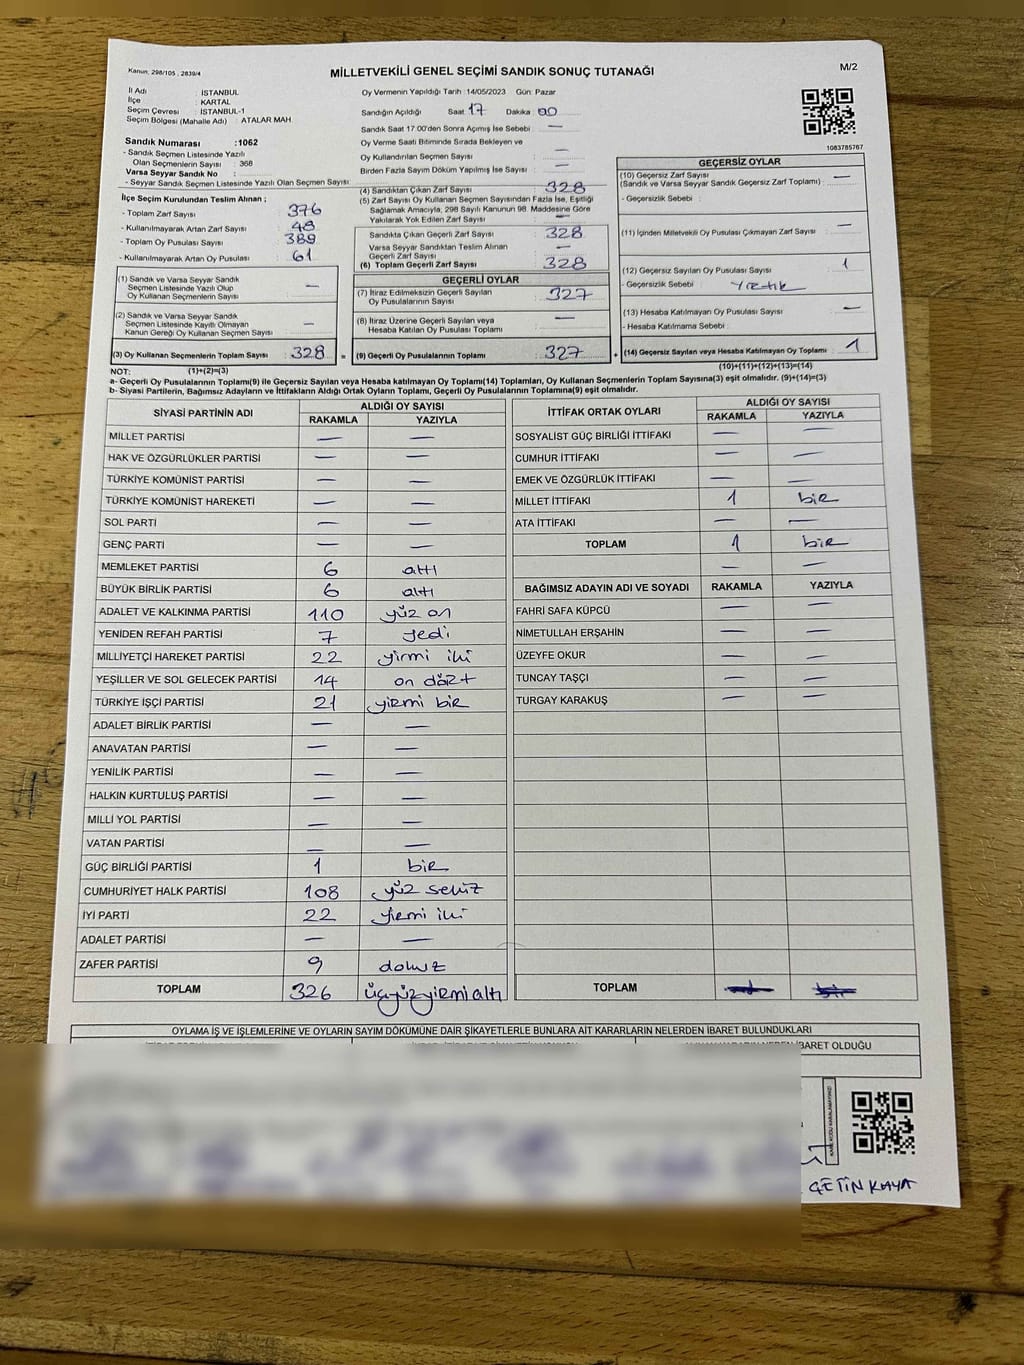 Kanun: 298/105 , 2839/4
MİLLETVEKİLİ GENEL SEÇİMİ SANDIK SONUÇ TUTANAĞI
M/2
İl Adı : İSTANBUL
İlçe : KARTAL
Seçim Çevresi : İSTANBUL-1
Seçim Bölgesi (Mahalle Adı) : ATALAR MAH.
Sandık Numarası :1062
- Sandık Seçmen Listesinde Yazılı
Olan Seçmenlerin Sayısı : 368
Varsa Seyyar Sandık No :
- Seyyar Sandık Seçmen Listesinde Yazılı Olan Seçmen Sayısı:
İlçe Seçim Kurulundan Teslim Alınan ;
- Toplam Zarf Sayısı : 376
- Kullanılmayarak Artan Zarf Sayısı : 48
- Toplam Oy Pusulası Sayısı : 389
- Kullanılmayarak Artan Oy Pusulası : 61
(1) Sandık ve Varsa Seyyar Sandık
Seçmen Listesinde Yazılı Olup
Oy Kullanan Seçmenlerin Sayısı : —
(2) Sandık ve Varsa Seyyar Sandık
Seçmen Listesinde Kayıtlı Olmayan
Kanun Gereği Oy Kullanan Seçmen Sayısı : —
(3) Oy Kullanan Seçmenlerin Toplam Sayısı : 328 =
Oy Vermenin Yapıldığı Tarih :14/05/2023 Gün: Pazar
Sandığın Açıldığı Saat 17 Dakika : 00
Sandık Saat 17:00'den Sonra Açımış İse Sebebi : —
Oy Verme Saati Bitiminde Sırada Bekleyen ve
Oy Kullandırılan Seçmen Sayısı : —
Birden Fazla Sayım Döküm Yapılmış İse Sayısı : —
(4) Sandıktan Çıkan Zarf Sayısı : 328
(5) Zarf Sayısı Oy Kullanan Seçmen Sayısından Fazla İse, Eşitliği
Sağlamak Amacıyla, 298 Sayılı Kanunun 98. Maddesine Göre
Yakılarak Yok Edilen Zarf Sayısı : —
Sandıkta Çıkan Geçerli Zarf Sayısı : 328
Varsa Seyyar Sandıktan Teslim Alınan
Geçerli Zarf Sayısı : —
(6) Toplam Geçerli Zarf Sayısı : 328
GEÇERLİ OYLAR
(7) İtiraz Edilmeksizin Geçerli Sayılan
Oy Pusulalarının Sayısı : 327
(8) İtiraz Üzerine Geçerli Sayılan veya
Hesaba Katılan Oy Pusulası Toplamı : —
(9) Geçerli Oy Pusulalarının Toplamı : 327 +
1083785767
GEÇERSİZ OYLAR
(10) Geçersiz Zarf Sayısı
(Sandık ve Varsa Seyyar Sandık Geçersiz Zarf Toplamı) : —
- Geçersizlik Sebebi :
(11) İçinden Milletvekili Oy Pusulası Çıkmayan Zarf Sayısı : —
(12) Geçersiz Sayılan Oy Pusulası Sayısı : 1
- Geçersizlik Sebebi : Yırtık
(13) Hesaba Katılmayan Oy Pusulası Sayısı : —
- Hesaba Katılmama Sebebi :
(14) Geçersiz Sayılan veya Hesaba Katılmayan Oy Toplamı : 1
NOT: (1)+(2)=(3) (10)+(11)+(12)+(13)=(14)
a- Geçerli Oy Pusulalarının Toplamı(9) ile Geçersiz Sayılan veya Hesaba katılmayan Oy Toplamı(14) Toplamları, Oy Kullanan Seçmenlerin Toplam Sayısına(3) eşit olmalıdır. (9)+(14)=(3)
b- Siyasi Partilerin, Bağımsız Adayların ve İttifakların Aldığı Ortak Oyların Toplamı, Geçerli Oy Pusulalarının Toplamına(9) eşit olmalıdır.
SİYASİ PARTİNİN ADI ALDIĞI OY SAYISI
RAKAMLA YAZIYLA
MİLLET PARTİSİ — —
HAK VE ÖZGÜRLÜKLER PARTİSİ — —
TÜRKİYE KOMÜNİST PARTİSİ — —
TÜRKİYE KOMÜNİST HAREKETİ — —
SOL PARTİ — —
GENÇ PARTİ — —
MEMLEKET PARTİSİ 6 altı
BÜYÜK BİRLİK PARTİSİ 6 altı
ADALET VE KALKINMA PARTİSİ 110 yüz on
YENİDEN REFAH PARTİSİ 7 yedi
MİLLİYETÇİ HAREKET PARTİSİ 22 yirmi iki
YEŞİLLER VE SOL GELECEK PARTİSİ 14 on dört
TÜRKİYE İŞÇİ PARTİSİ 21 yirmi bir
ADALET BİRLİK PARTİSİ — —
ANAVATAN PARTİSİ — —
YENİLİK PARTİSİ — —
HALKIN KURTULUŞ PARTİSİ — —
MİLLİ YOL PARTİSİ — —
VATAN PARTİSİ — —
GÜÇ BİRLİĞİ PARTİSİ 1 bir
CUMHURİYET HALK PARTİSİ 108 yüz sekiz
İYİ PARTİ 22 yirmi iki
ADALET PARTİSİ — —
ZAFER PARTİSİ 9 dokuz
TOPLAM 326 üçyüzyirmialtı
İTTİFAK ORTAK OYLARI ALDIĞI OY SAYISI
RAKAMLA YAZIYLA
SOSYALİST GÜÇ BİRLİĞİ İTTİFAKI — —
CUMHUR İTTİFAKI — —
EMEK VE ÖZGÜRLÜK İTTİFAKI — —
MİLLET İTTİFAKI 1 bir
ATA İTTİFAKI — —
TOPLAM 1 bir
— —
BAĞIMSIZ ADAYIN ADI VE SOYADI RAKAMLA YAZIYLA
FAHRİ SAFA KÜPCÜ — —
NİMETULLAH ERŞAHİN — —
ÜZEYFE OKUR — —
TUNCAY TAŞÇI — —
TURGAY KARAKUŞ — —
TOPLAM
OYLAMA İŞ VE İŞLEMLERİNE VE OYLARIN SAYIM DÖKÜMÜNE DAİR ŞİKAYETLERLE BUNLARA AİT KARARLARIN NELERDEN İBARET BULUNDUKLARI
İBARET OLDUĞU
ÇETİN KAYA